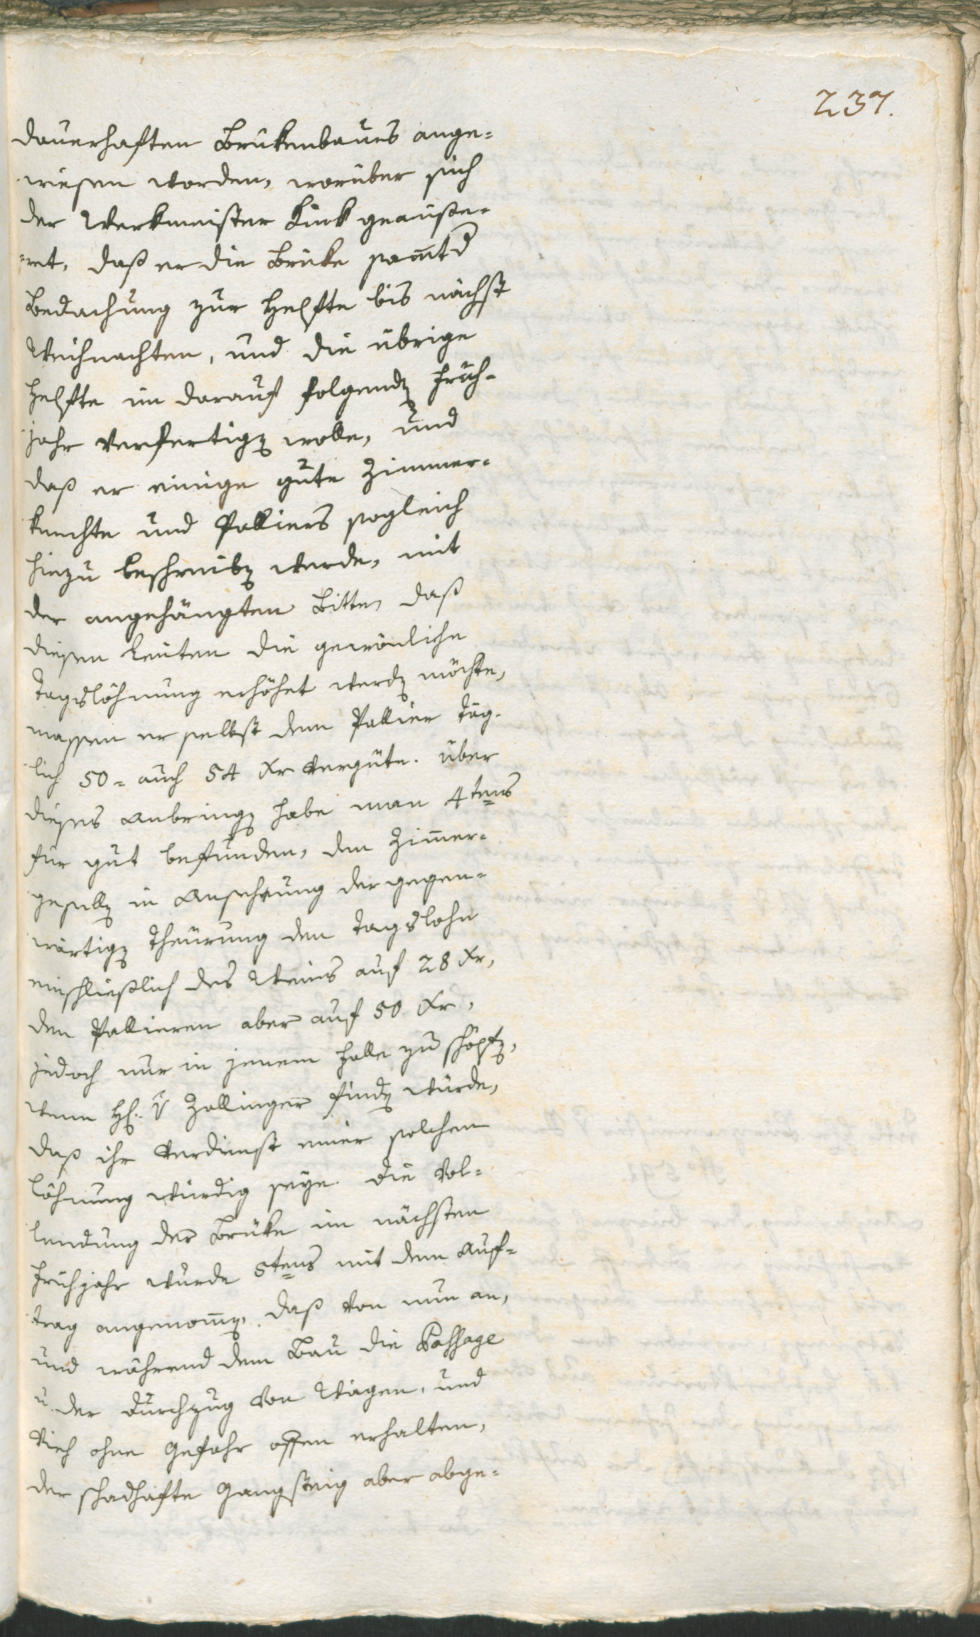 237.
dauerhaften Brükenbaues ange=
wiesen worden, worüber sich
der Werkmeister Kink geäuße=
ret, daß er die Brüke sam̅t d
Bedachung zur Helfte bis nächst
Weihnachten, und die übrige
Helfte im darauf folgendē Früh=
jahr verfertigē wolle, und
daß er einige gute Zimmer=
knechte und Palliers sogleich
hiezu beschreibē werde, mit
der angehängten Bitte, daß
diesen Leuten die gewönliche
Tagslöhnung erhöhet werdē möchte,
massen er selbst dem Pallier täg=
lich 50 = auch 54 Xr vergüte. Über
dieses Anbringē habe man 4tens
für gut befunden, den Zim̅er=
gesellē in Ansehung der gegen=
wärtigē Theurung den Tagslohn
einschließlich des Weins auf 28 Xr,
den Pallieren aber auf 50 Xr,
jedoch nur in jenem Falle zu schöpfē,
wenn H. v Zallinger findē würde,
daß ihr Verdienst einer solchen
Löhnung würdig seye. Die Vol=
lendung der Brüke im nächsten
Frühjahr wurde 5tens mit dem Auf=
trag angenom̅ē, daß von nun an,
und während dem Bau die Passage
u. der Durchzug von Wägen, und
Vieh ohne Gefahr offen erhalten,
der schadhafte Gangsteig aber abge=